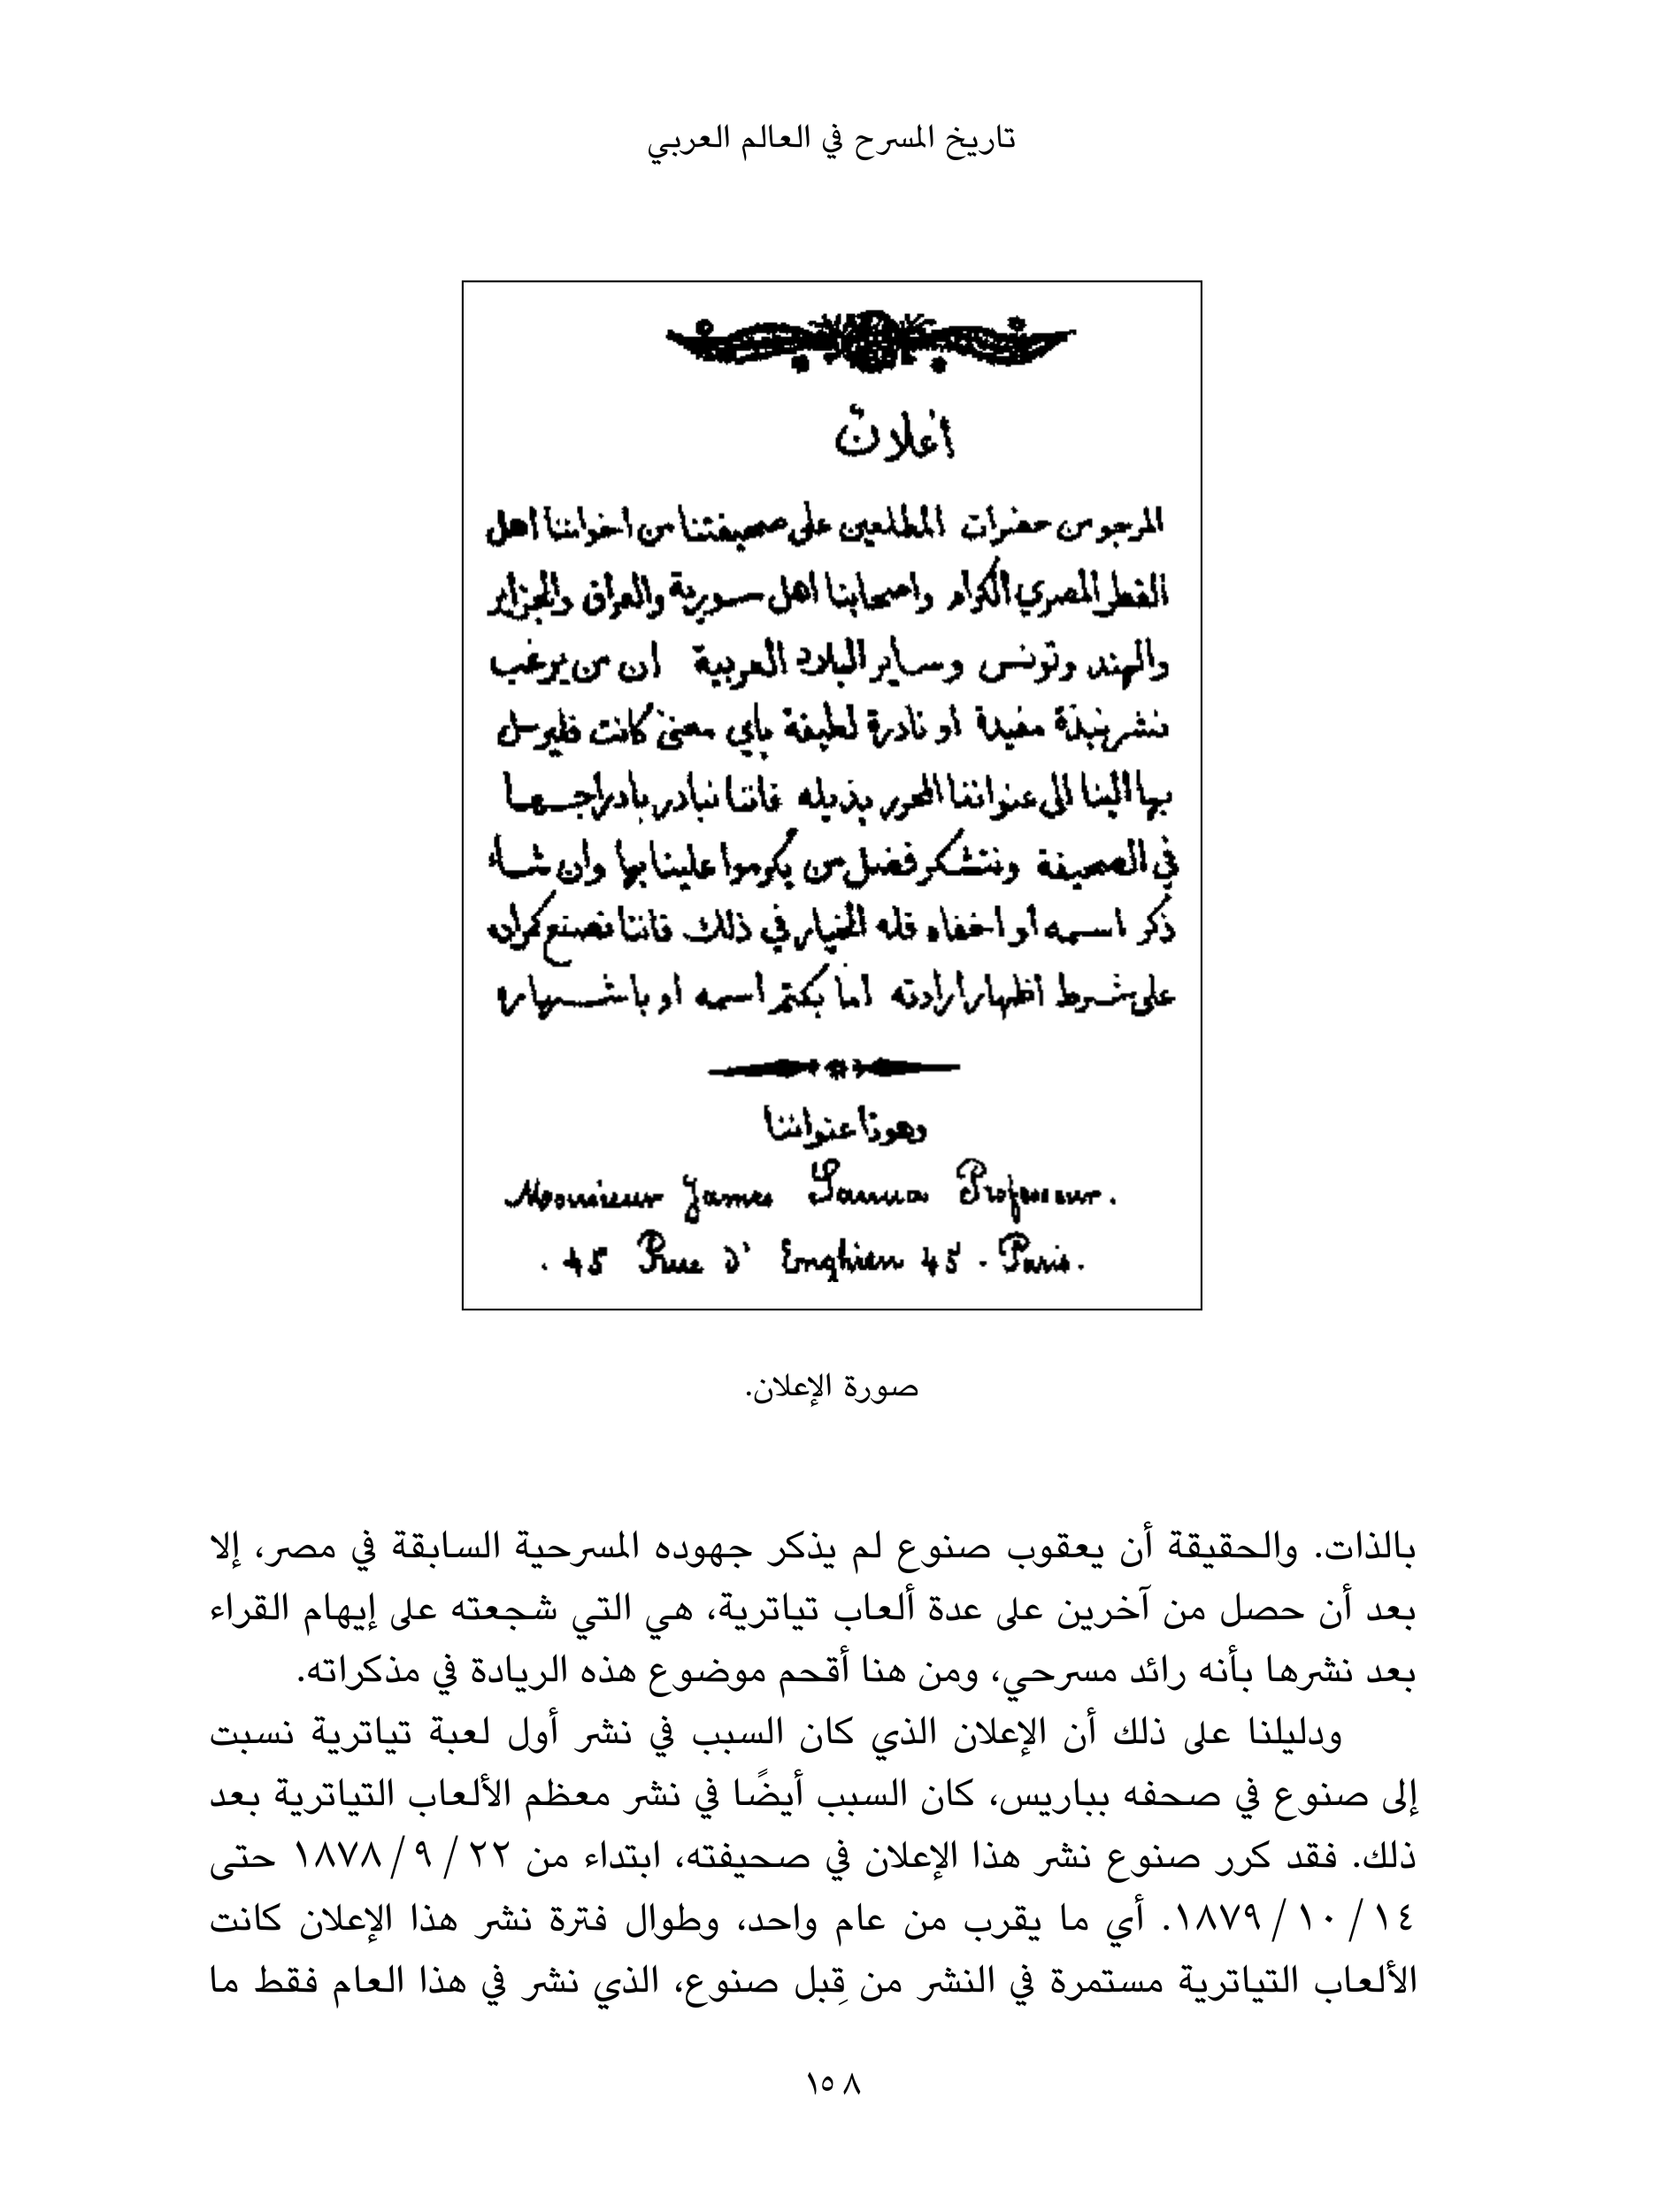 تاريخ المسرح في العالم العربي
اعلان
المرجو من حضرات المطلعين على صحيفتنا من اخواننا اهل
القطر المصري الكرام واصحابنا اهل سورية والعراق والجزاير
والهند وتونس وساير البلاد العربية ان من يرغب
نشر نبذة مفيدة او نادرة لطيفة باي معنى كانت فليرسل
بها الينا الى عنواننا المحرر بذيله فاننا نبادر بادراجها
في الصحيفة ونتشكر فضل من يكرموا علينا بها وان شاء
ذكر اسمه او اخفاه فله الخيار في ذلك فاننا نصنع كمرامه
على شرط اظهار ارادته اما بكتم اسمه او باشهاره
وهوذا عنواننا
Monsieur James Sanua Professeur.
. 45 Rue d' Enghien 45 - Paris.
صورة الإعلان.
بالذات. والحقيقة أن يعقوب صنوع لم يذكر جهوده المسرحية السابقة في مصر، إلا
بعد أن حصل من آخرين على عدة ألعاب تياترية، هي التي شجعته على إيهام القراء
بعد نشرها بأنه رائد مسرحي، ومن هنا أقحم موضوع هذه الريادة في مذكراته.
ودليلنا على ذلك أن الإعلان الذي كان السبب في نشر أول لعبة تياترية نسبت
إلى صنوع في صحفه بباريس، كان السبب أيضًا في نشر معظم الألعاب التياترية بعد
ذلك. فقد كرر صنوع نشر هذا الإعلان في صحيفته، ابتداء من ٢٢ / ٩ / ١٨٧٨ حتى
١٤ / ١٠ / ١٨٧٩. أي ما يقرب من عام واحد، وطوال فترة نشر هذا الإعلان كانت
الألعاب التياترية مستمرة في النشر من قِبل صنوع، الذي نشر في هذا العام فقط ما
١٥٨